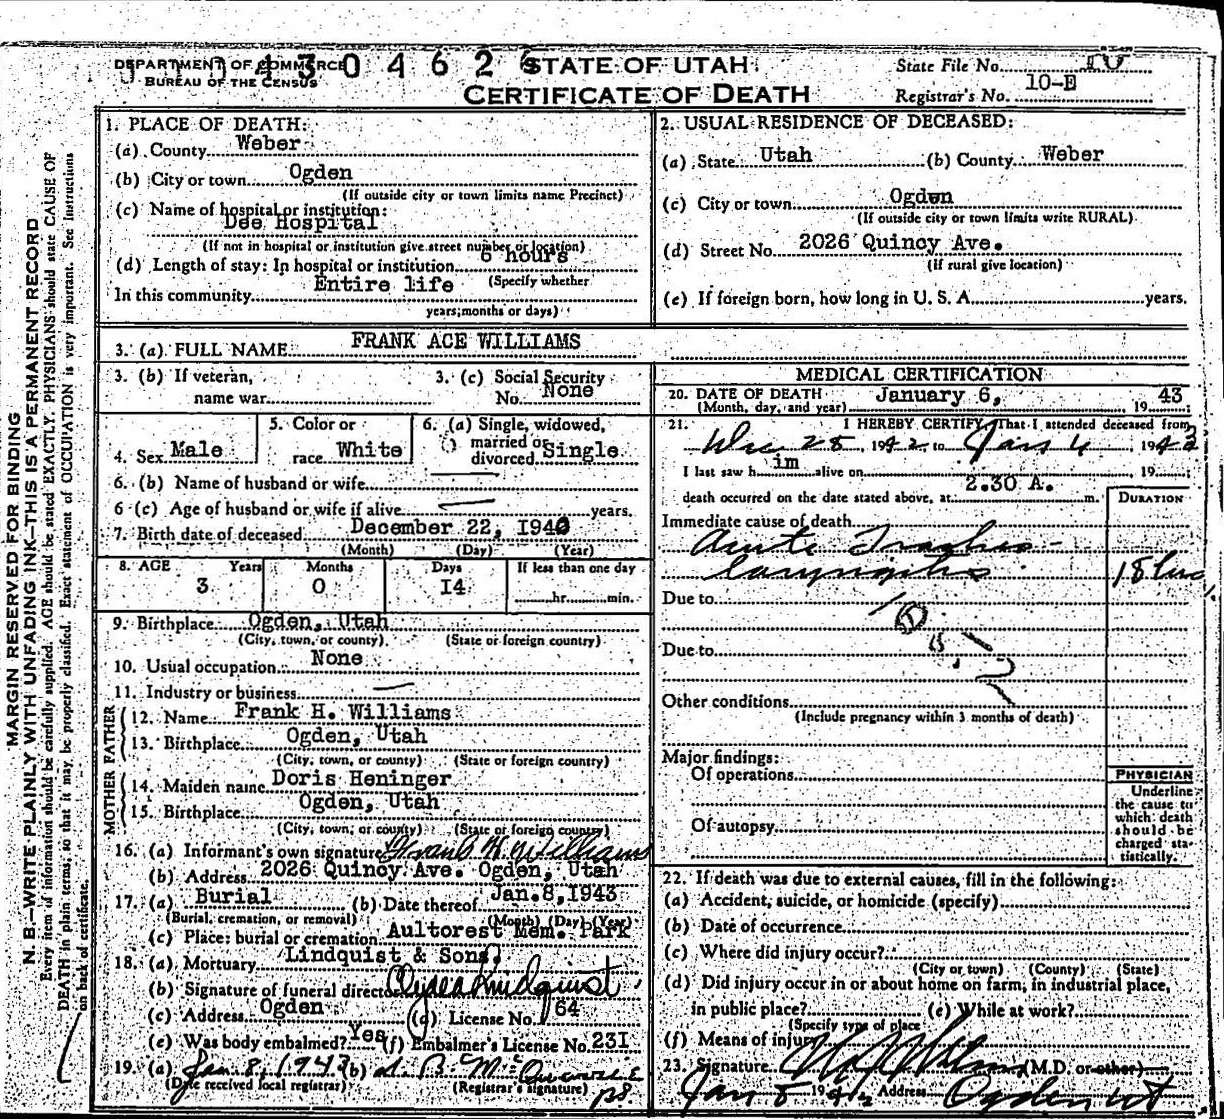 DEPARTMENT OF COMMERCE
BUREAU OF THE CENSUS
430462
STATE OF UTAH
CERTIFICATE OF DEATH
State File No. 10
Registrar's No. 10-E
MARGIN RESERVED FOR BINDING
N. B.—WRITE PLAINLY WITH UNFADING INK—THIS IS A PERMANENT RECORD
Every item of information should be carefully supplied. AGE should be stated EXACTLY. PHYSICIANS should state CAUSE OF
DEATH in plain terms, so that it may be properly classified. Exact statement of OCCUPATION is very important. See Instructions
on back of certificate.
1. PLACE OF DEATH:
(a) County Weber
(b) City or town Ogden
(If outside city or town limits name Precinct)
(c) Name of hospital or institution:
Dee Hospital
(If not in hospital or institution give street number or location)
(d) Length of stay: In hospital or institution 6 hours
(Specify whether
In this community Entire life
years; months or days)
2. USUAL RESIDENCE OF DECEASED:
(a) State Utah (b) County Weber
(c) City or town Ogden
(If outside city or town limits write RURAL)
(d) Street No. 2026 Quincy Ave.
(If rural give location)
(e) If foreign born, how long in U. S. A. years.
3. (a) FULL NAME FRANK ACE WILLIAMS
3. (b) If veteran,
name war
3. (c) Social Security
No. None
4. Sex Male
5. Color or
race White
6. (a) Single, widowed,
married or
divorced Single
6. (b) Name of husband or wife
6 (c) Age of husband or wife if alive years.
7. Birth date of deceased December 22, 1940
(Month) (Day) (Year)
8. AGE Years Months Days If less than one day
3 0 14 hr. min.
9. Birthplace Ogden, Utah
(City, town, or county) (State or foreign country)
10. Usual occupation None
11. Industry or business
FATHER
12. Name Frank H. Williams
13. Birthplace Ogden, Utah
(City, town, or county) (State or foreign country)
MOTHER
14. Maiden name Doris Heninger
15. Birthplace Ogden, Utah
(City, town, or county) (State or foreign country)
16. (a) Informant's own signature Frank H. Williams
(b) Address 2026 Quincy Ave. Ogden, Utah
17. (a) Burial (b) Date thereof Jan. 8, 1943
(Burial, cremation, or removal) (Month) (Day) (Year)
(c) Place: burial or cremation Aultorest Mem. Park
18. (a) Mortuary Lindquist & Sons.
(b) Signature of funeral director Lindquist
(c) Address Ogden (d) License No. 64
(e) Was body embalmed? Yes (f) Embalmer's License No. 231
19. (a) Jan 8, 1943 (b)
(Date received local registrar) (Registrar's signature)
MEDICAL CERTIFICATION
20. DATE OF DEATH January 6, 1943
(Month, day, and year)
21. I HEREBY CERTIFY, That I attended deceased from
Dec 28, 1942 to Jan 6 1943
I last saw him alive on 19
death occurred on the date stated above, at 2.30 A. m.
DURATION
Immediate cause of death
Acute Tracheo-
laryngitis 18 hrs
Due to
Due to
Other conditions
(Include pregnancy within 3 months of death)
Major findings:
Of operations
Of autopsy
PHYSICIAN
Underline
the cause to
which death
should be
charged sta-
tistically.
22. If death was due to external causes, fill in the following:
(a) Accident, suicide, or homicide (specify)
(b) Date of occurrence
(c) Where did injury occur?
(City or town) (County) (State)
(d) Did injury occur in or about home on farm, in industrial place,
in public place? (e) While at work?
(Specify type of place
(f) Means of injury
23. Signature (M.D. or other)
Jan 8 Address Ogden Ut